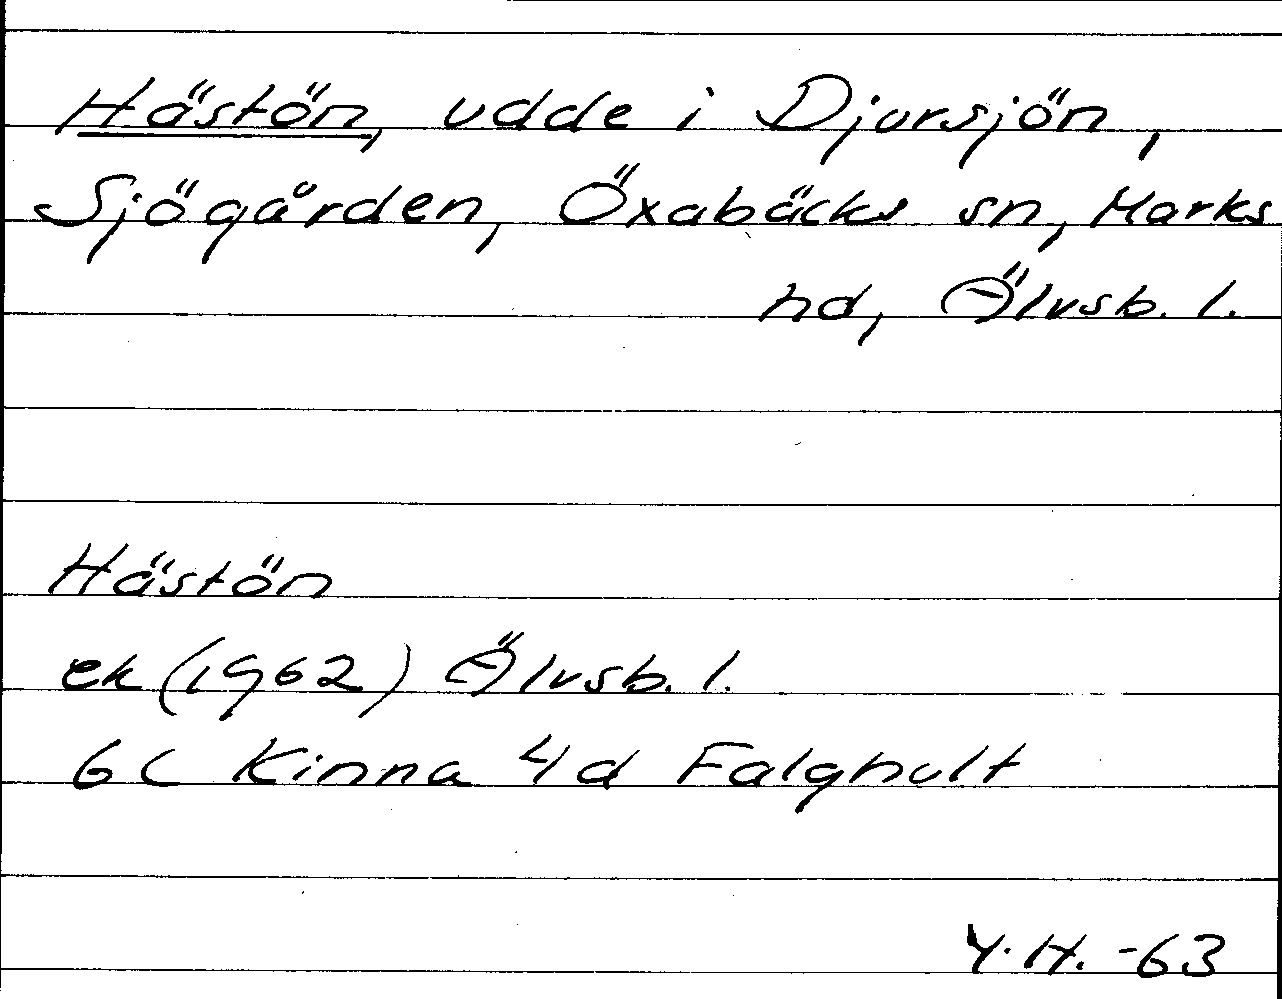 Hästön, udde i Djursjön,
Sjögården, Öxabäcks sn, Marks
hd, Älvsb. l.
Hästön
ek (1962) Älvsb. l.
6C Kinna 4d Falghult
Y.H. -63